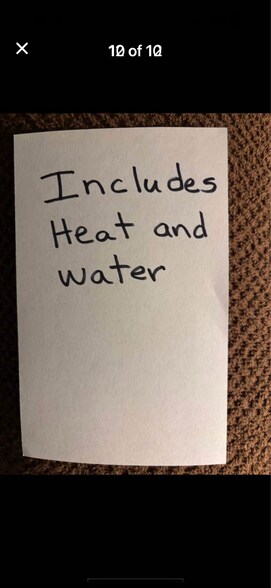 10 of 10
Includes
Heat and
water